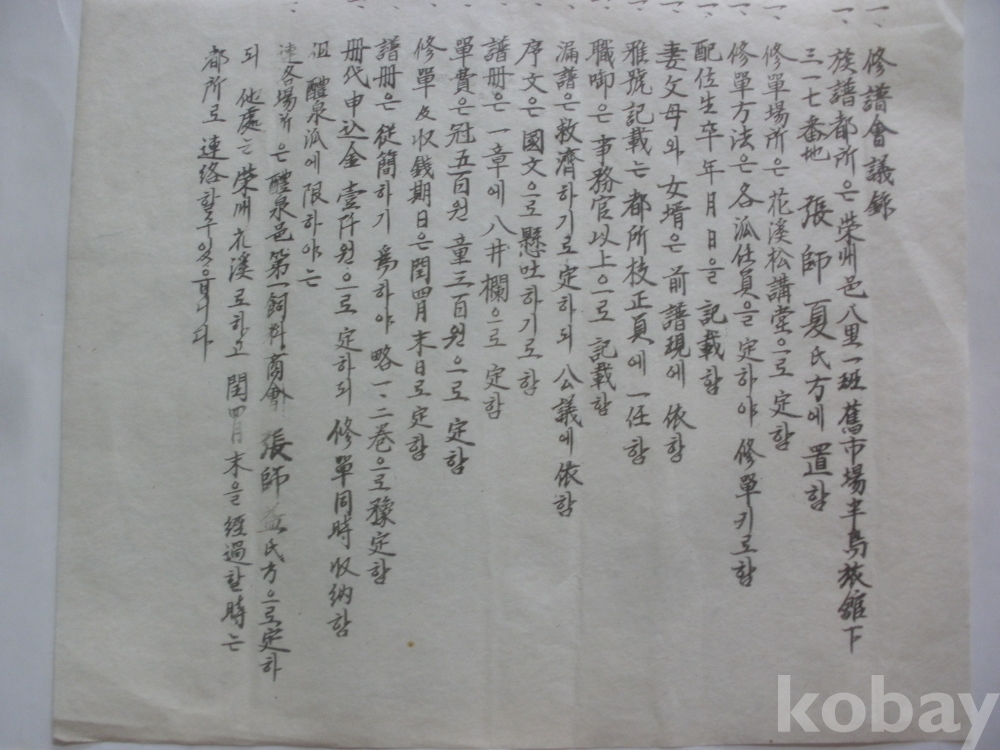 一、修譜會議錄
一、族譜都所은 榮州邑 八里 一班 舊市場 半島旅館下
三一七番地 張師夏氏方에 置함
一、修單場所은 花溪 松講堂으로 定함
一、修單方法은 各派任員을 定하야 修單키로 함
一、配位生卒年月日을 記載함
一、妻父母와 女婿은 前譜現에 依함
一、雅號記載는 都所校正員에 一任함
一、職啣은 事務官以上으로 記載함
一、漏譜은 救濟하기로 定하되 公議에 依함
一、序文은 國文으로 懸吐하기로 함
一、譜册은 一章에 八井欄으로 定함
一、單費은 冠五百원 童三百원으로 定함
一、修單及收錢期日은 閏四月末日로 定함
一、譜册은 從簡하기 爲하야 略一、二卷으로 豫定함
一、册代申込金 壹阡원으로 定하되 修單同時收納함
一、但 醴泉派에 限하야는
連各場所은 醴泉邑 第一飼料商會 張師 氏方으로 定하
되 他處는 榮州花溪로하고 閏四月末을 經過할時는
都所로 連絡할수있음니다
kobay